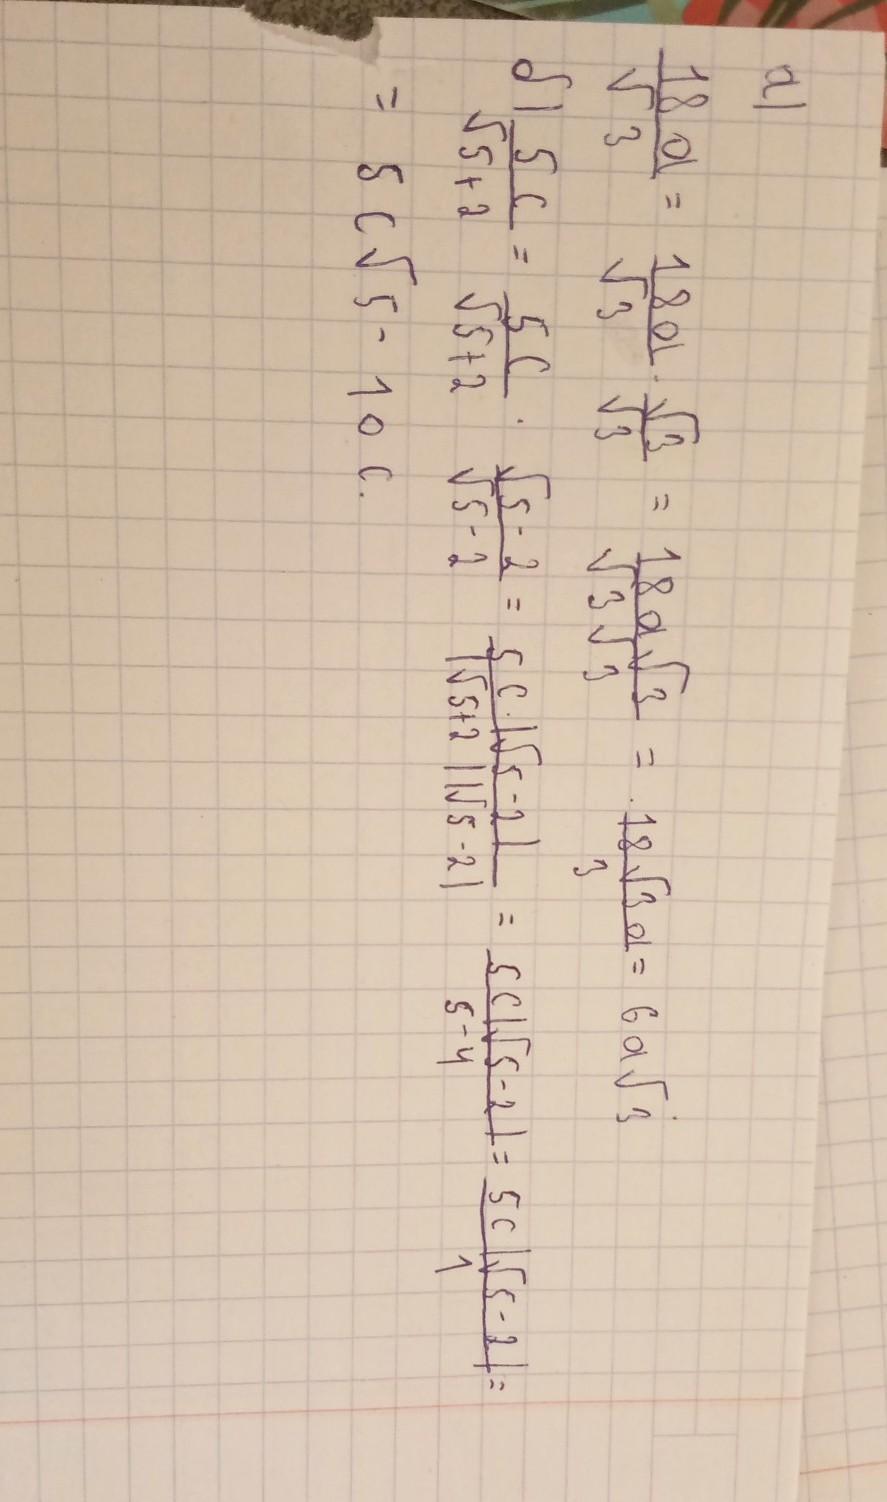 а)
18a/√3 = 18a/√3 · √3/√3 = 18a√3/√3√3 = 18√3a/3 = 6a√3
б) 5c/√5+2 = 5c/√5+2 · √5-2/√5-2 = 5c·(√5-2)/(√5+2)(√5-2) = 5c(√5-2)/5-4 = 5c(√5-2)/1 =
= 5c√5-10c.